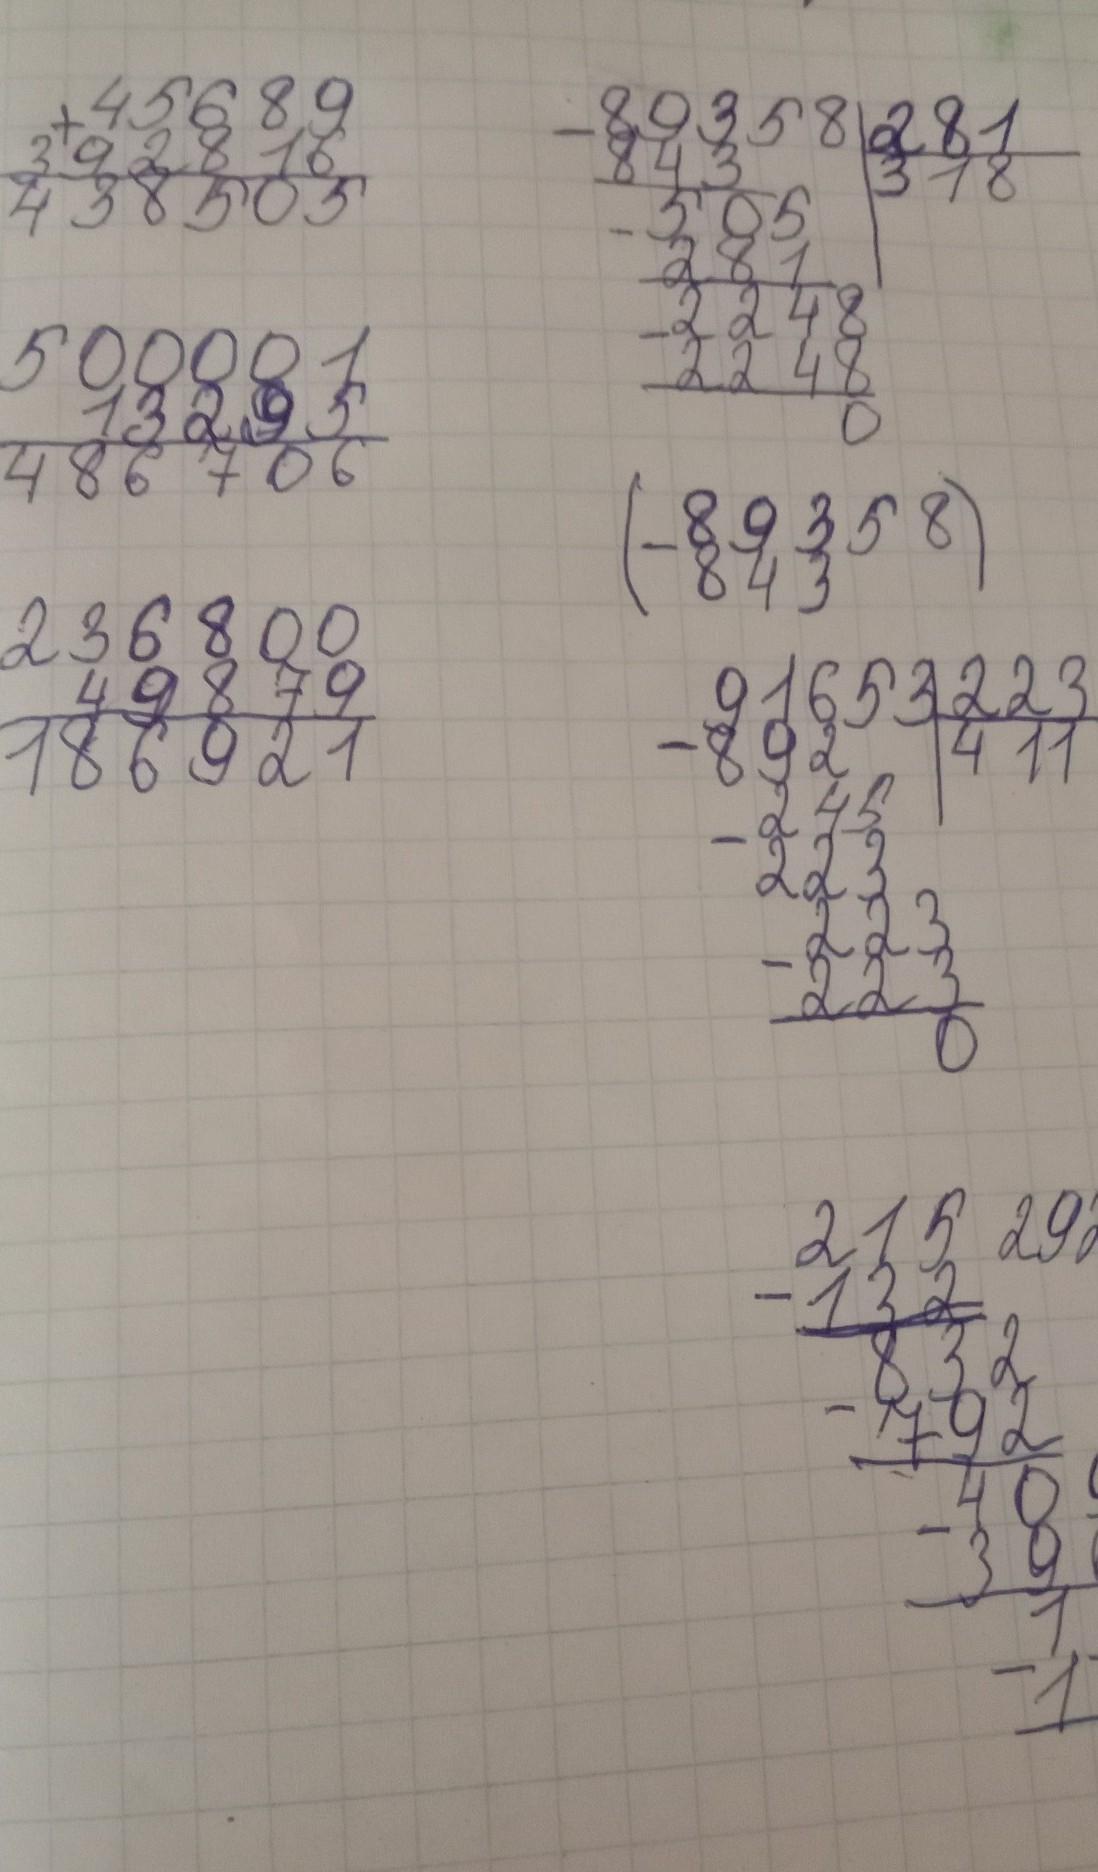 +45689
392816
438505
500001
13295
486706
236800
49879
186921
-89358 281
843 318
-505
281
-2248
2248
0
(-89358)
843
91653 223
-892 411
-245
223
223
-223
0
215 292
-132
832
-792
40
-39
1
-1